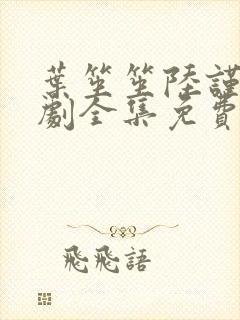 葉笙笙陸謹
劇全集免費
飛飛語